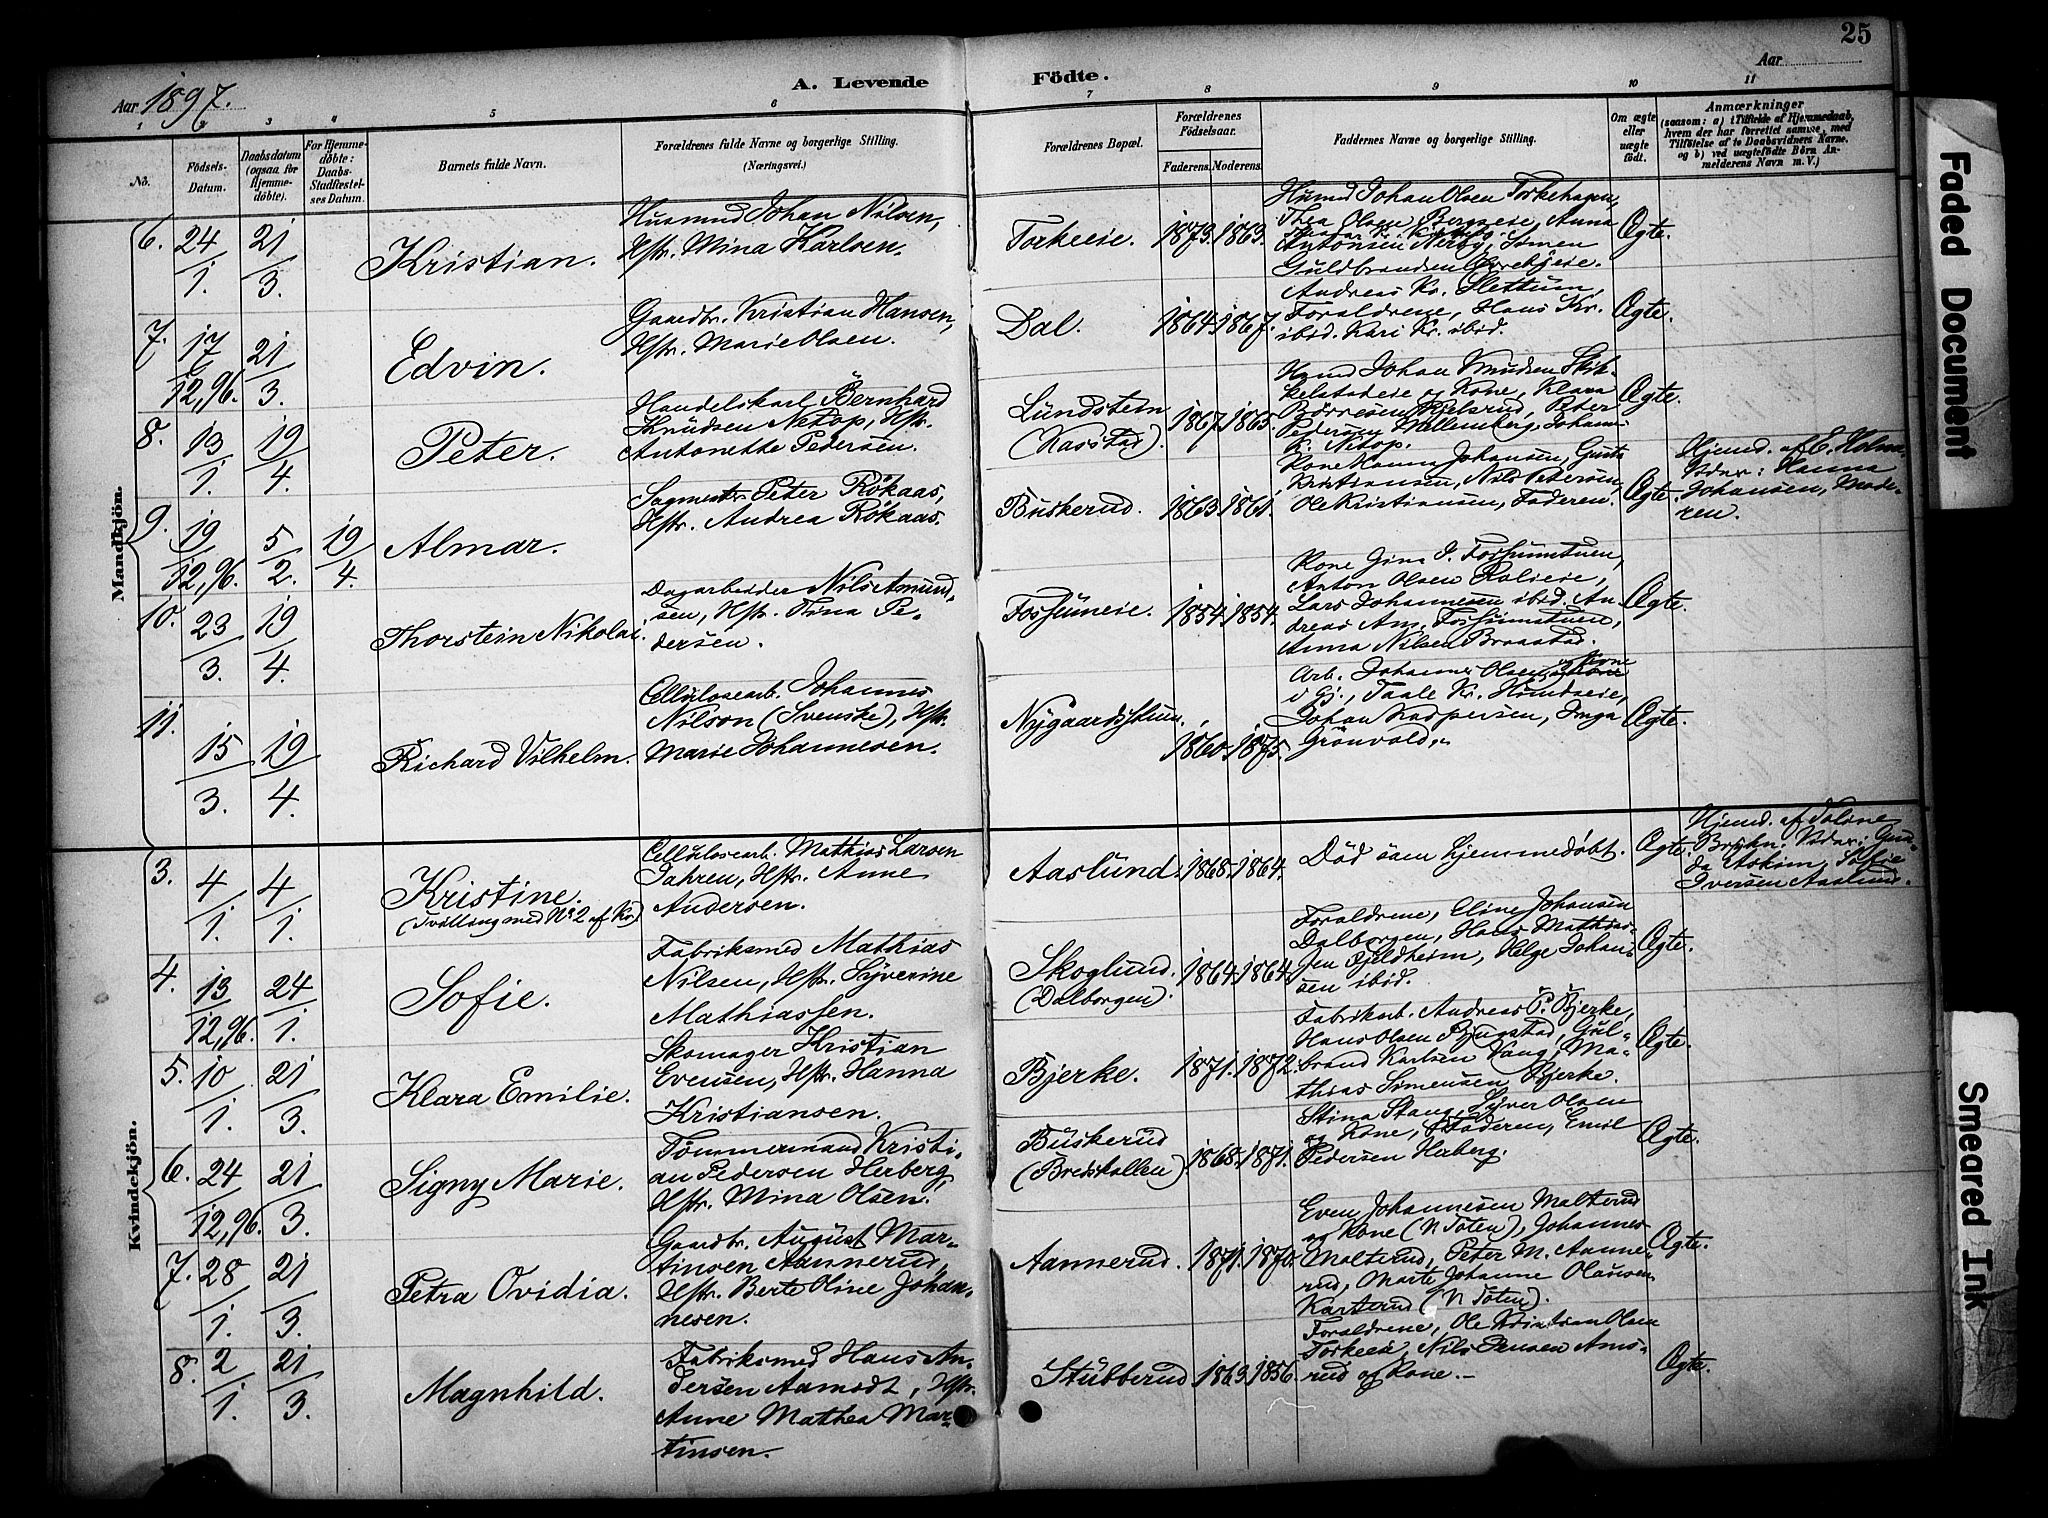 25
Aar 1897.
A. Levende Födte.
Aar
1 2 3 4 5 6 7 8 9 10 11
No.
Födsels-
Datum.
Daabsdatum
(ogsaa for
Hjemme-
döbte).
For Hjemme-
döbte:
Daabs-
Stadfæstel-
ses Datum.
Barnets fulde Navn.
Forældrenes fulde Navne og borgerlige Stilling.
(Næringsvei.)
Forældrenes Bopæl.
Forældrenes
Födselsaar.
Faderens. Moderens.
Faddernes Navne og borgerlige Stilling.
Om ægte
eller
uægte
födt.
Anmærkninger
(saasom: a) i Tilfælde af Hjemmedaab,
hvem der har forrettet samme, med
Tilföielse af to Daabsvidners Navne,
og b) ved uægtefödte Börn An-
melderens Navn m. V.)
Mandkjön.
6. 24/1. 21/3.
Kristian.
Husmnd Johan Nilsen,
Hstr. Mina Karlsen.
Torkeeie. 1873. 1863.
Husmd Johan Olsen Torkehagen,
Thea Olsen Bergseie, Anna
Antonsen Nerby, Simen
Guldbrandsen
Ægte.
7. 17/12,96. 21/3.
Edvin.
Gaardbr. Kristian Hansen,
Hstr. Marie Olsen.
Dal. 1864. 1867.
Andreas Kr. Slettum,
Forældrene, Hans Kr.
ibid. Kari Kr. ibid.
Ægte.
8. 13/1. 19/4.
Peter.
Handelskarl Bernhard
Knudsen Netop, Hstr.
Antonette Pedersen.
Lundstein
(Kasstad). 1867. 1865.
Hsmd Johan Knudsen Skik-
kelstadeie og Kone, Klara
Børresen Kjelsrud, Peter
Pedersen Wellenberg, Johan
K. Netop.
Ægte.
9. 19/12,96. 5/2. 19/4.
Almar.
Sagmester Peter Rökaas,
Hstr. Andrea Rökaas.
Buskerud. 1863. 1861.
Kone Hanna Johansen, Gusta
Kristiansen, Nils Petersen,
Ole Kristiansen, Faderen.
Ægte.
Hjemd. af E. Holm.
Vidner: Hanna
Johansen, Mode-
ren.
10. 23/3. 19/4.
Thorstein Nikolai.
Dagarbeider Nils Amund-
sen, Hstr. Tina Pe-
dersen.
Fossumeie. 1854. 1854.
Kone Gina J. Fossumstuen,
Anton Olsen Rolieie,
Lars Johannesen ibid. An-
dreas Am. Fossumstuen,
Anna Nilsen Braastad.
Ægte.
11. 15/3. 19/4.
Richard Vilhelm.
Cellulosearb. Johannes
Nilson (Svenske), Hstr.
Marie Johannesen.
Nygaardsstuen. 1860. 1875.
Arb. Johannes Olsen og Kone
i Gj., Taale Kr. Hundseie,
Johan Kaspersen, Inga
Grönvold.
Ægte.
Kvindekjön.
3. 4/1. 4/1.
Kristine.
(Tvilling med No 2 af Kn)
Cellulosearb. Mathias Larsen
Jahren, Hstr. Anne
Andersen.
Aaslund. 1868. 1864.
Död som hjemmedøbt.
Ægte.
Hjemd. af Toline
Brükn. Vidner: Gun-
da Askim, Sofie
Iversen Aaslund.
4. 13/12,96. 24/1.
Sofie.
Fabriksmed Mathias
Nilsen, Hstr. Syverine
Mathiassen.
Skoglund.
(Dalborgen). 1864. 1864.
Forældrene, Eline Johansen
Dalborgen, Hans Mathis-
sen Fjeldheim, Helge Johan-
sen ibid.
Ægte.
5. 10/1. 21/3.
Klara Emilie.
Skomager Kristian
Evensen, Hstr. Hanna
Kristiansen.
Bjerke. 1871. 1872.
Fabrikarb. Andreas P. Bjerke,
Hans Olsen Bjugstad, Gul-
brand Karlsen Vang, Ma-
thias Simensen Bjerke.
Ægte.
6. 24/12,96. 21/3.
Signy Marie.
Tömmermand Kristi-
an Pedersen Herberg,
Hstr. Mina Olsen.
Buskerud
(Bredskallen) 1868. 1871.
Stina Stang, Syver Olsen
og Kone, Faderen, Emil
Pedersen Herberg.
Ægte.
7. 28/1. 21/3.
Petra Ovidia.
Gaardbr. August Mar-
tinsen Aannerud,
Hstr. Berte Oline Johan-
nesen.
Aannerud. 1871. 1870.
Even Johannesen Malterud
og Kone (N Toten), Johannes
Malterud, Peter M. Aanne-
rud, Marte Johanne Olausen
Karterud (N Toten).
Ægte.
8. 2/1. 21/3.
Magnhild.
Fabriksmed Hans An-
dersen Aamodt, Hstr.
Anne Mathea Mar-
tinsen.
Stubberud 1863. 1856.
Forældrene, Ole Kristian Olsen
Torkeeie, Nils Jensen Ams-
rud og Kone.
Ægte.
Faded Document
Smeared Ink